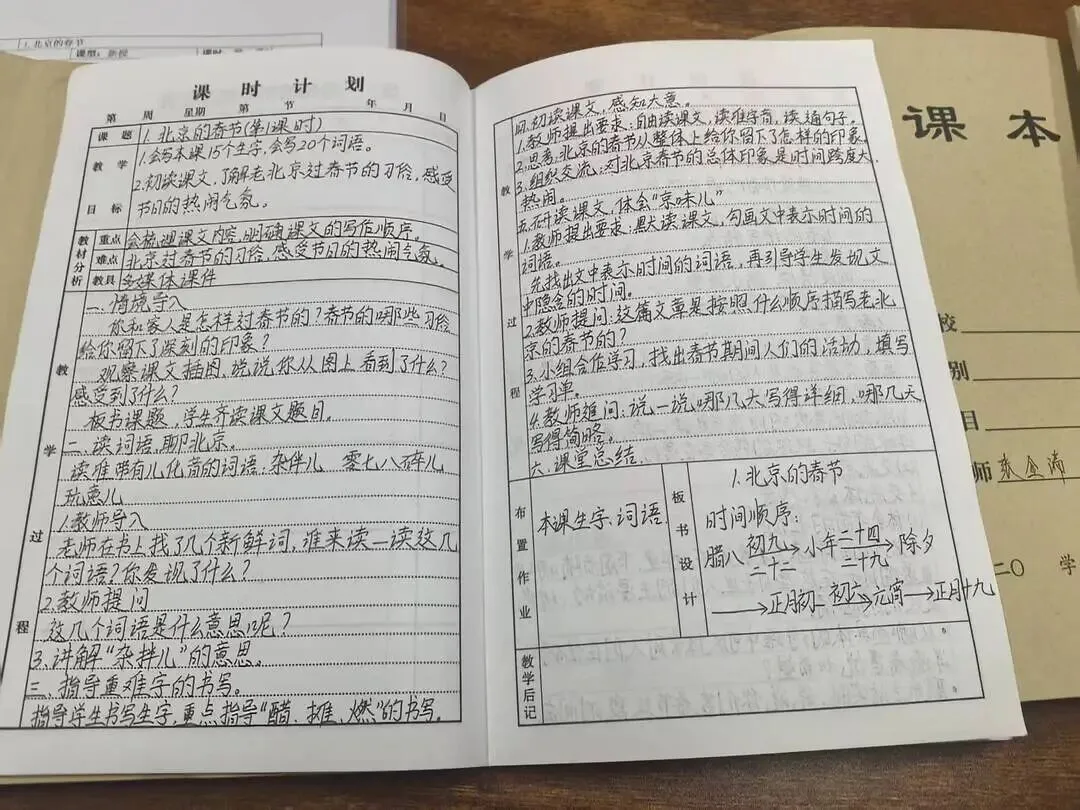 1.北京的春节
课型：新授
课时
课时计划
第 周 星期 第 节 年 月 日
课题
1.北京的春节(第1课时)
教学目标
1.会写本课15个生字,会写20个词语。
2.初读课文,了解老北京过春节的习俗,感受
节日的热闹气氛。
教材分析
重点
会梳理课文内容,明确课文的写作顺序。
难点
北京过春节的习俗,感受节日的热闹气氛。
教具
多媒体课件
教学过程
一、情境导入
你和家人是怎样过春节的?春节的哪些习俗
给你留下了深刻的印象?
观察课文插图,说说你从图上看到了什么?
感受到了什么?
板书课题,学生齐读课文题目。
二、读词语,聊北京。
读准带有儿化音的词语:杂伴儿 零七八碎儿
玩意儿
1.教师导入
老师在书上找了几个新鲜词,谁来读一读这几
个词语?你发现了什么?
2.教师提问
这几个词语是什么意思呢?
3.讲解“杂拌儿”的意思。
三、指导重难字的书写。
指导学生书写生字,重点指导“醋、摊、燃”的书写。
教学过程
四.初读课文,感知大意。
1.教师提出要求:自由读课文,读准字音,读通句子。
2.思考:北京的春节从整体上给你留下了怎样的印象。
3.组织交流:对北京春节的总体印象是时间跨度大,
热闹。
五.研读课文,体会“京味儿”
1.教师提出要求:默大读课文,勾画文中表示时间的
词语。
先找出文中表示时间的词语,再引导学生发现文
中隐含的时间。
2.教师提问:这篇文章是按照什么顺序描写老北
京的春节的?
3.小组合作学习,找出春节期间人们的活动,填写
学习单。
4.教师追问:说一说,哪几天写得详细,哪几天
写得简略。
六.课堂总结.
布置作业
本课生字、词语.
板书设计
1.北京的春节
时间顺序:
腊八 初九 二十二 小年 二十四 二十九 除夕
正月初一 初六 元宵 正月十九
教学后记
课本
校
别
目
师
二〇 学